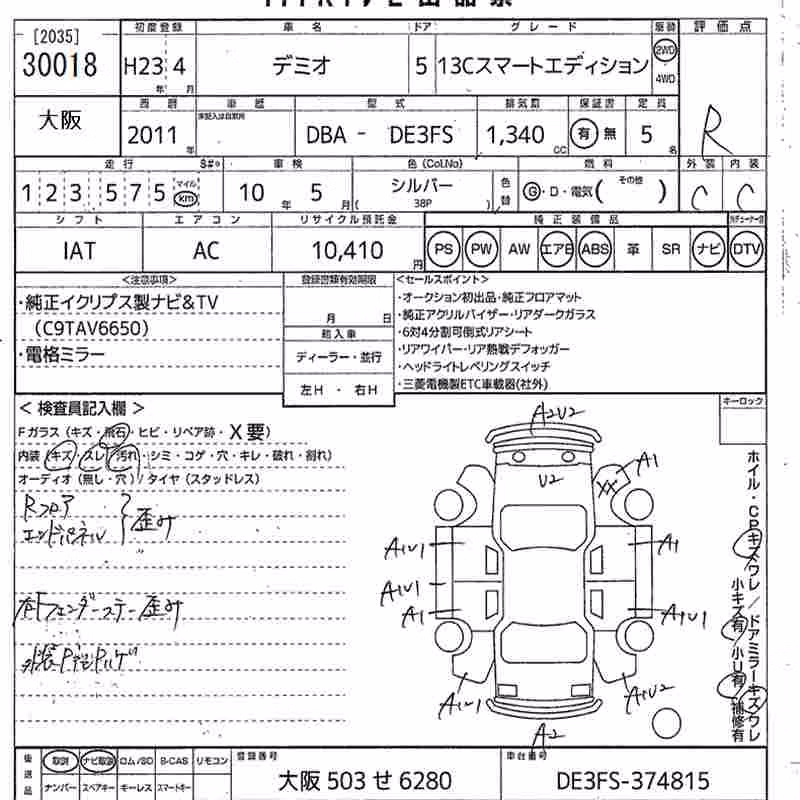 [2035]
30018
初度登録 車名 ドア グレード 駆動 評価点
H23 4 デミオ 5 13Cスマートエディション 2WD 4WD
年 月
大阪
西暦 車歴 型式 排気量 保証書 定員
2011 年 未記入は自家用 DBA - DE3FS 1,340 CC 有 無 5 名 R
走行 S#* 車検 色(Col.No) 燃料 外装 内装
123,575 マイル km 10 年 5 月 シルバー ( 38P ) 色替 G・D・電気( その他 ) C C
シフト エアコン リサイクル預託金 純正装備品
IAT AC 10,410 円 PS PW AW エアB ABS 革 SR ナビ DTV
<注意事項> 登録書類有効期限 <セールスポイント>
・純正イクリプス製ナビ&TV
(C9TAV6650)
・電格ミラー
月 日
輸入車
ディーラー・並行
左H ・ 右H
・オークション初出品・純正フロアマット
・純正アクリルバイザー・リアダークガラス
・6対4分割可倒式リアシート
・リアワイパー・リア熱戦デフォッガー
・ヘッドライトレベリングスイッチ
・三菱電機製ETC車載器(社外)
キーロック
< 検査員記入欄 >
Fガラス (キズ・飛石・ヒビ・リペア跡・X要)
内装 (キズ・スレ・汚れ・シミ・コゲ・穴・キレ・破れ・割れ)
オーディオ (無し・穴) / タイヤ (スタッドレス)
Rフロア
エンドパネル 歪み
右Fフェンダーステー歪み
A2U2
U2
A1
XX
A1U1
A1
A1U1
A1
A1U1
A1U1
A1U2
A2
ホイル・CPキズワレ / ドアミラーキズワレ
小キズ有 小U有 補修有
後送品 取説 ナビ取説 ロム/SD B-CAS リモコン
ナンバー スペアキー キーレス スマートキー
登録番号 大阪 503 せ 6280
車台番号 DE3FS-374815